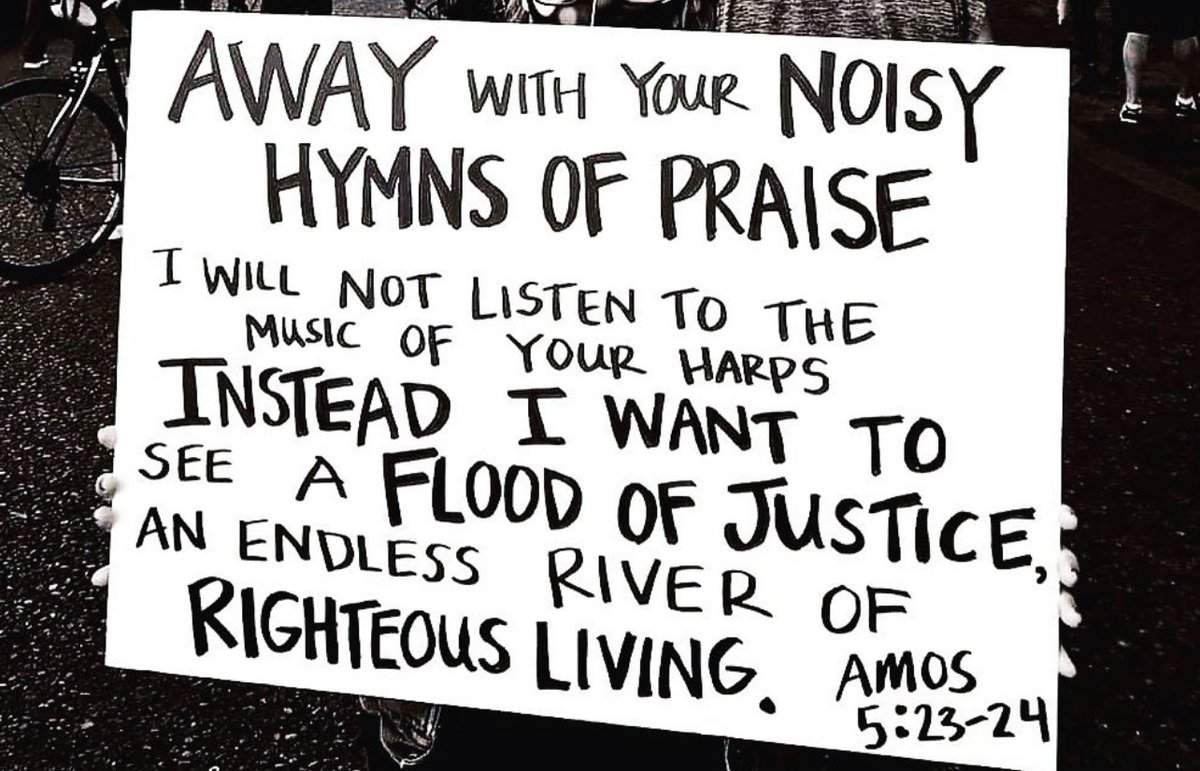 AWAY WITH YOUR NOISY
HYMNS OF PRAISE
I WILL NOT LISTEN TO THE
MUSIC OF YOUR HARPS
INSTEAD I WANT TO
SEE A FLOOD OF JUSTICE,
AN ENDLESS RIVER OF
RIGHTEOUS LIVING.
AMOS
5:23-24